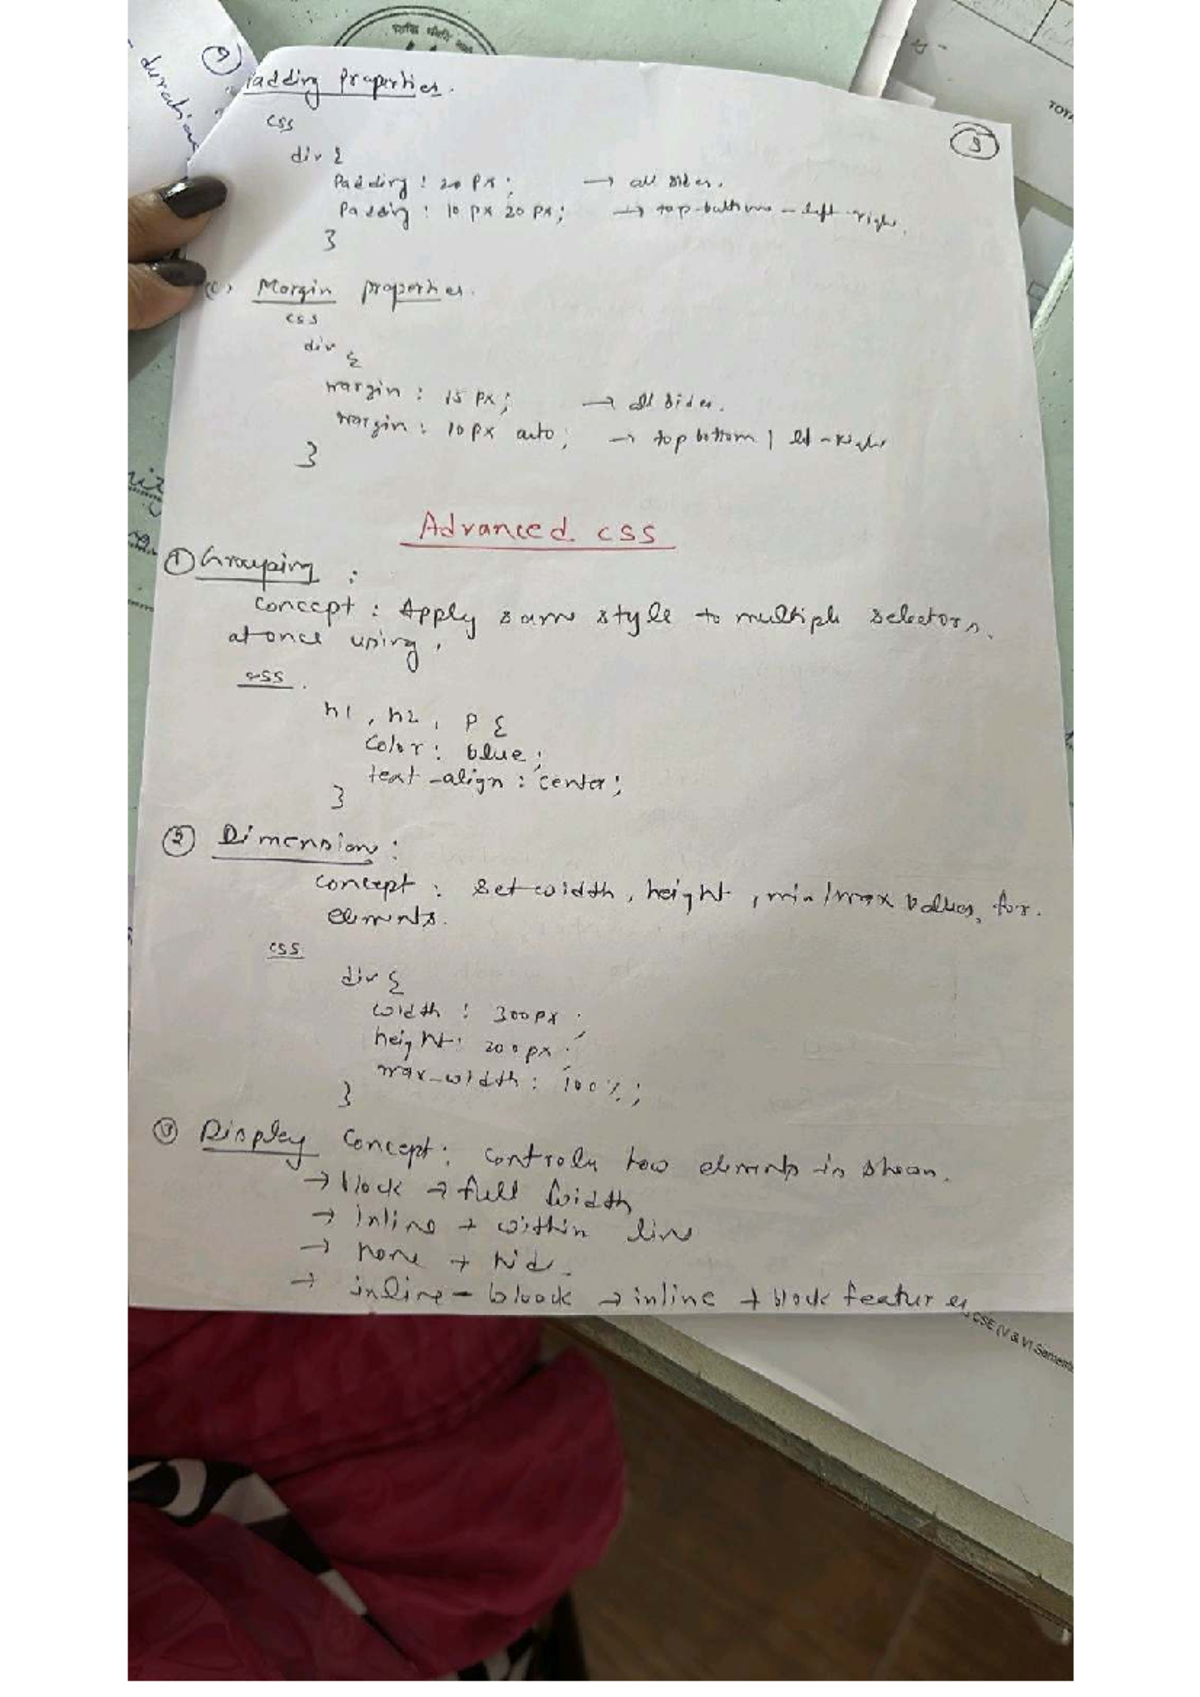 duration
TOTA
9
Padding Properties.
css
div {
Padding : 20 px ; → all sides.
Padding : 10 px 20 px ; → top-bottom - left-right.
}
(c) Margin properties.
css
div {
margin : 15 px ; → all sides.
margin : 10 px auto ; → top bottom |
}
Advanced css
① Grouping :
concept : Apply same style to multiple selectors.
at once using ,
css
h1 , h2 , p {
color : blue ;
text-align : center ;
}
② Dimension :
concept : set width , height , min/max values for
elements.
css
div {
width : 300px ;
height : 200px ;
max-width : 100% ;
}
③ Display concept : controls how elements is shown.
→ block → full width
→ inline → within line
→ none → hide.
→ inline-block → inline + block features
CSE (V & VI Semest